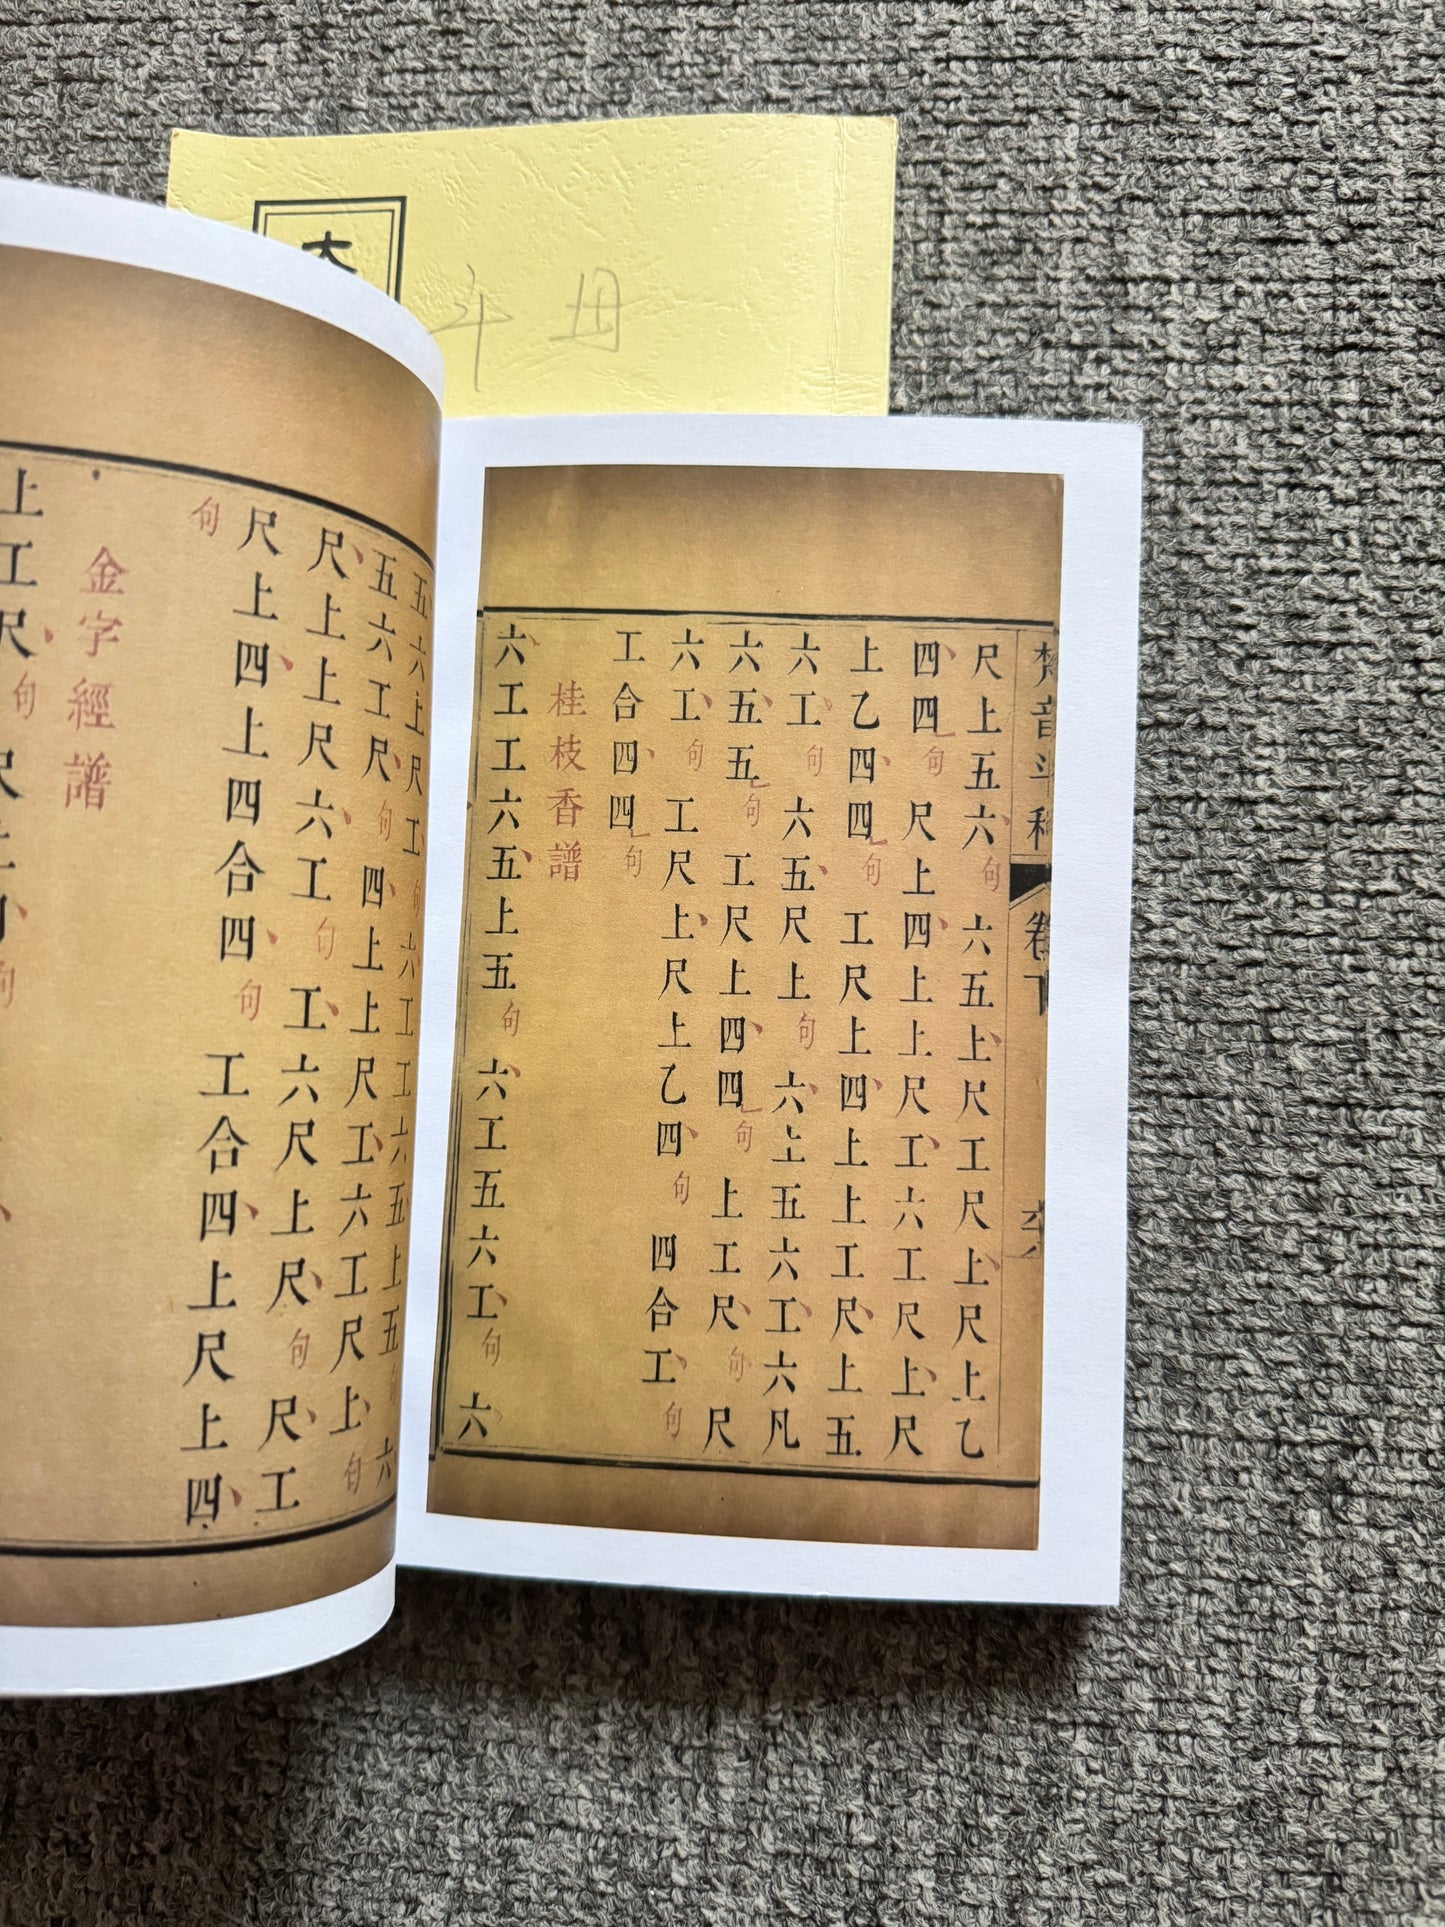 梵音斗科 卷下
尺上五六句 六五上尺工尺上尺上乙
四四句 尺上四上上尺工六工尺上尺
上乙四四句 工尺上四上上工尺上五
六工句 六五尺上句 六上五六工六凡
六五五句 工尺上四四句 上工尺句 尺
六工句 工尺上尺上乙四句 四合工句
工合四四句
桂枝香譜
六工工六五上五句 六工五六工句 六
五六上尺工句 六工工六五上五句 六
五六工尺句 四上上尺工六工尺上句
尺上上尺六工句 工六尺上尺句 尺工
尺上四上四合四句 工合四上尺上四
句
金字經譜
上工尺句 尺
斗